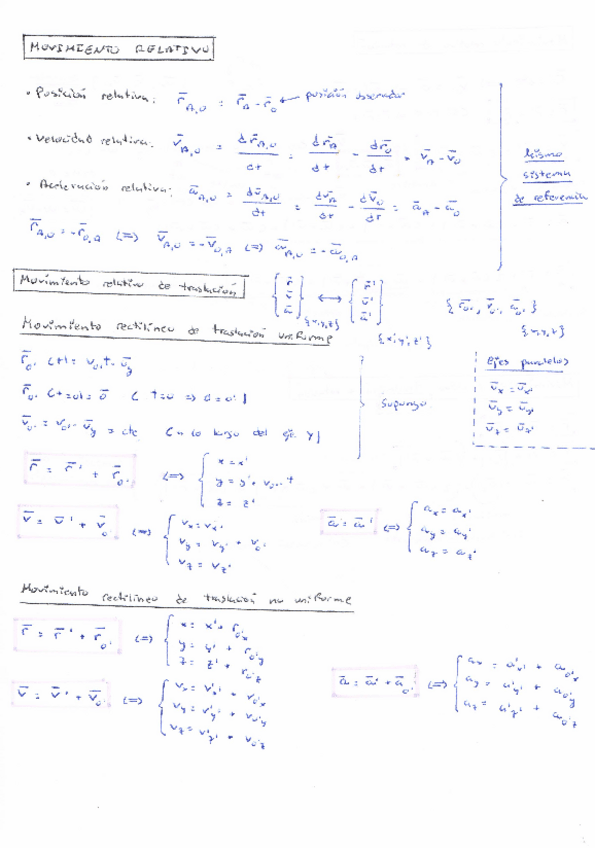 MOVIMIENTO RELATIVO
• Posición relativa: r̄_A,O = r̄_A - r̄_O ← posición observador
• Velocidad relativa: v̄_A,O = dr̄_A,O/dt = dr̄_A/dt - dr̄_O/dt = v̄_A - v̄_O
Mismo sistema de referencia
• Aceleración relativa: ā_A,O = dv̄_A,O/dt = dv̄_A/dt - dv̄_O/dt = ā_A - ā_O
r̄_A,O = -r̄_O,A (=) v̄_A,O = -v̄_O,A (=) ā_A,O = -ā_O,A
Movimiento relativo de traslación
{r̄ v̄ ā} {x,y,z} ↔ {r̄' v̄' ā'} {x',y',z'}
{r̄_O', v̄_O', ā_O'} {x,y,z}
Movimiento rectilíneo de traslación uniforme
r̄_O' (t) = v_O' t · ū_y
r̄_O' (t=0) = ō ( t=0 => O=O' )
v̄_O' = v_O' · ū_y = cte (a lo largo del eje Y)
supongo
Ejes paralelos
ū_x = ū_x'
ū_y = ū_y'
ū_z = ū_z'
r̄ = r̄' + r̄_O' (=) { x = x'
y = y' + v_O' t
z = z'
v̄ = v̄' + v̄_O' (=) { v_x = v_x'
v_y = v_y' + v_O'
v_z = v_z'
ā = ā' (=) { a_x = a_x'
a_y = a_y'
a_z = a_z'
Movimiento rectilíneo de traslación no uniforme
r̄ = r̄' + r̄_O' (=) { x = x' + r_O'x
y = y' + r_O'y
z = z' + r_O'z
v̄ = v̄' + v̄_O' (=) { v_x = v'_x' + v_O'x
v_y = v'_y' + v_O'y
v_z = v'_z' + v_O'z
ā = ā' + ā_O' (=) { a_x = a'_x' + a_O'x
a_y = a'_y' + a_O'y
a_z = a'_z' + a_O'z